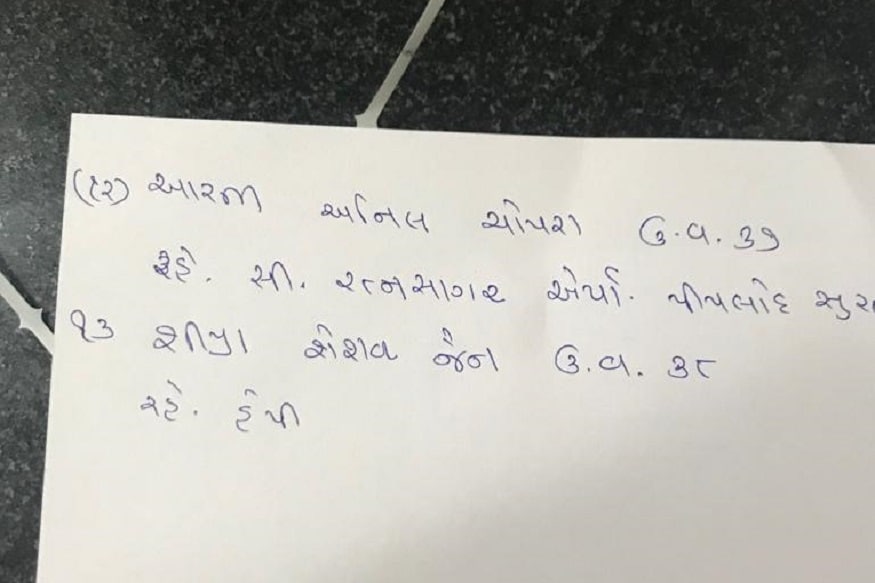 (૧૨) આરતી અનિલ ચોપરા ઉ.વ. ૩૭
રહે. સી. રત્નસાગર એપા. પીપલોદ સુરત
૧૩ શીપ્રા શૈશવ જૈન ઉ.વ. ૩૮
રહે.